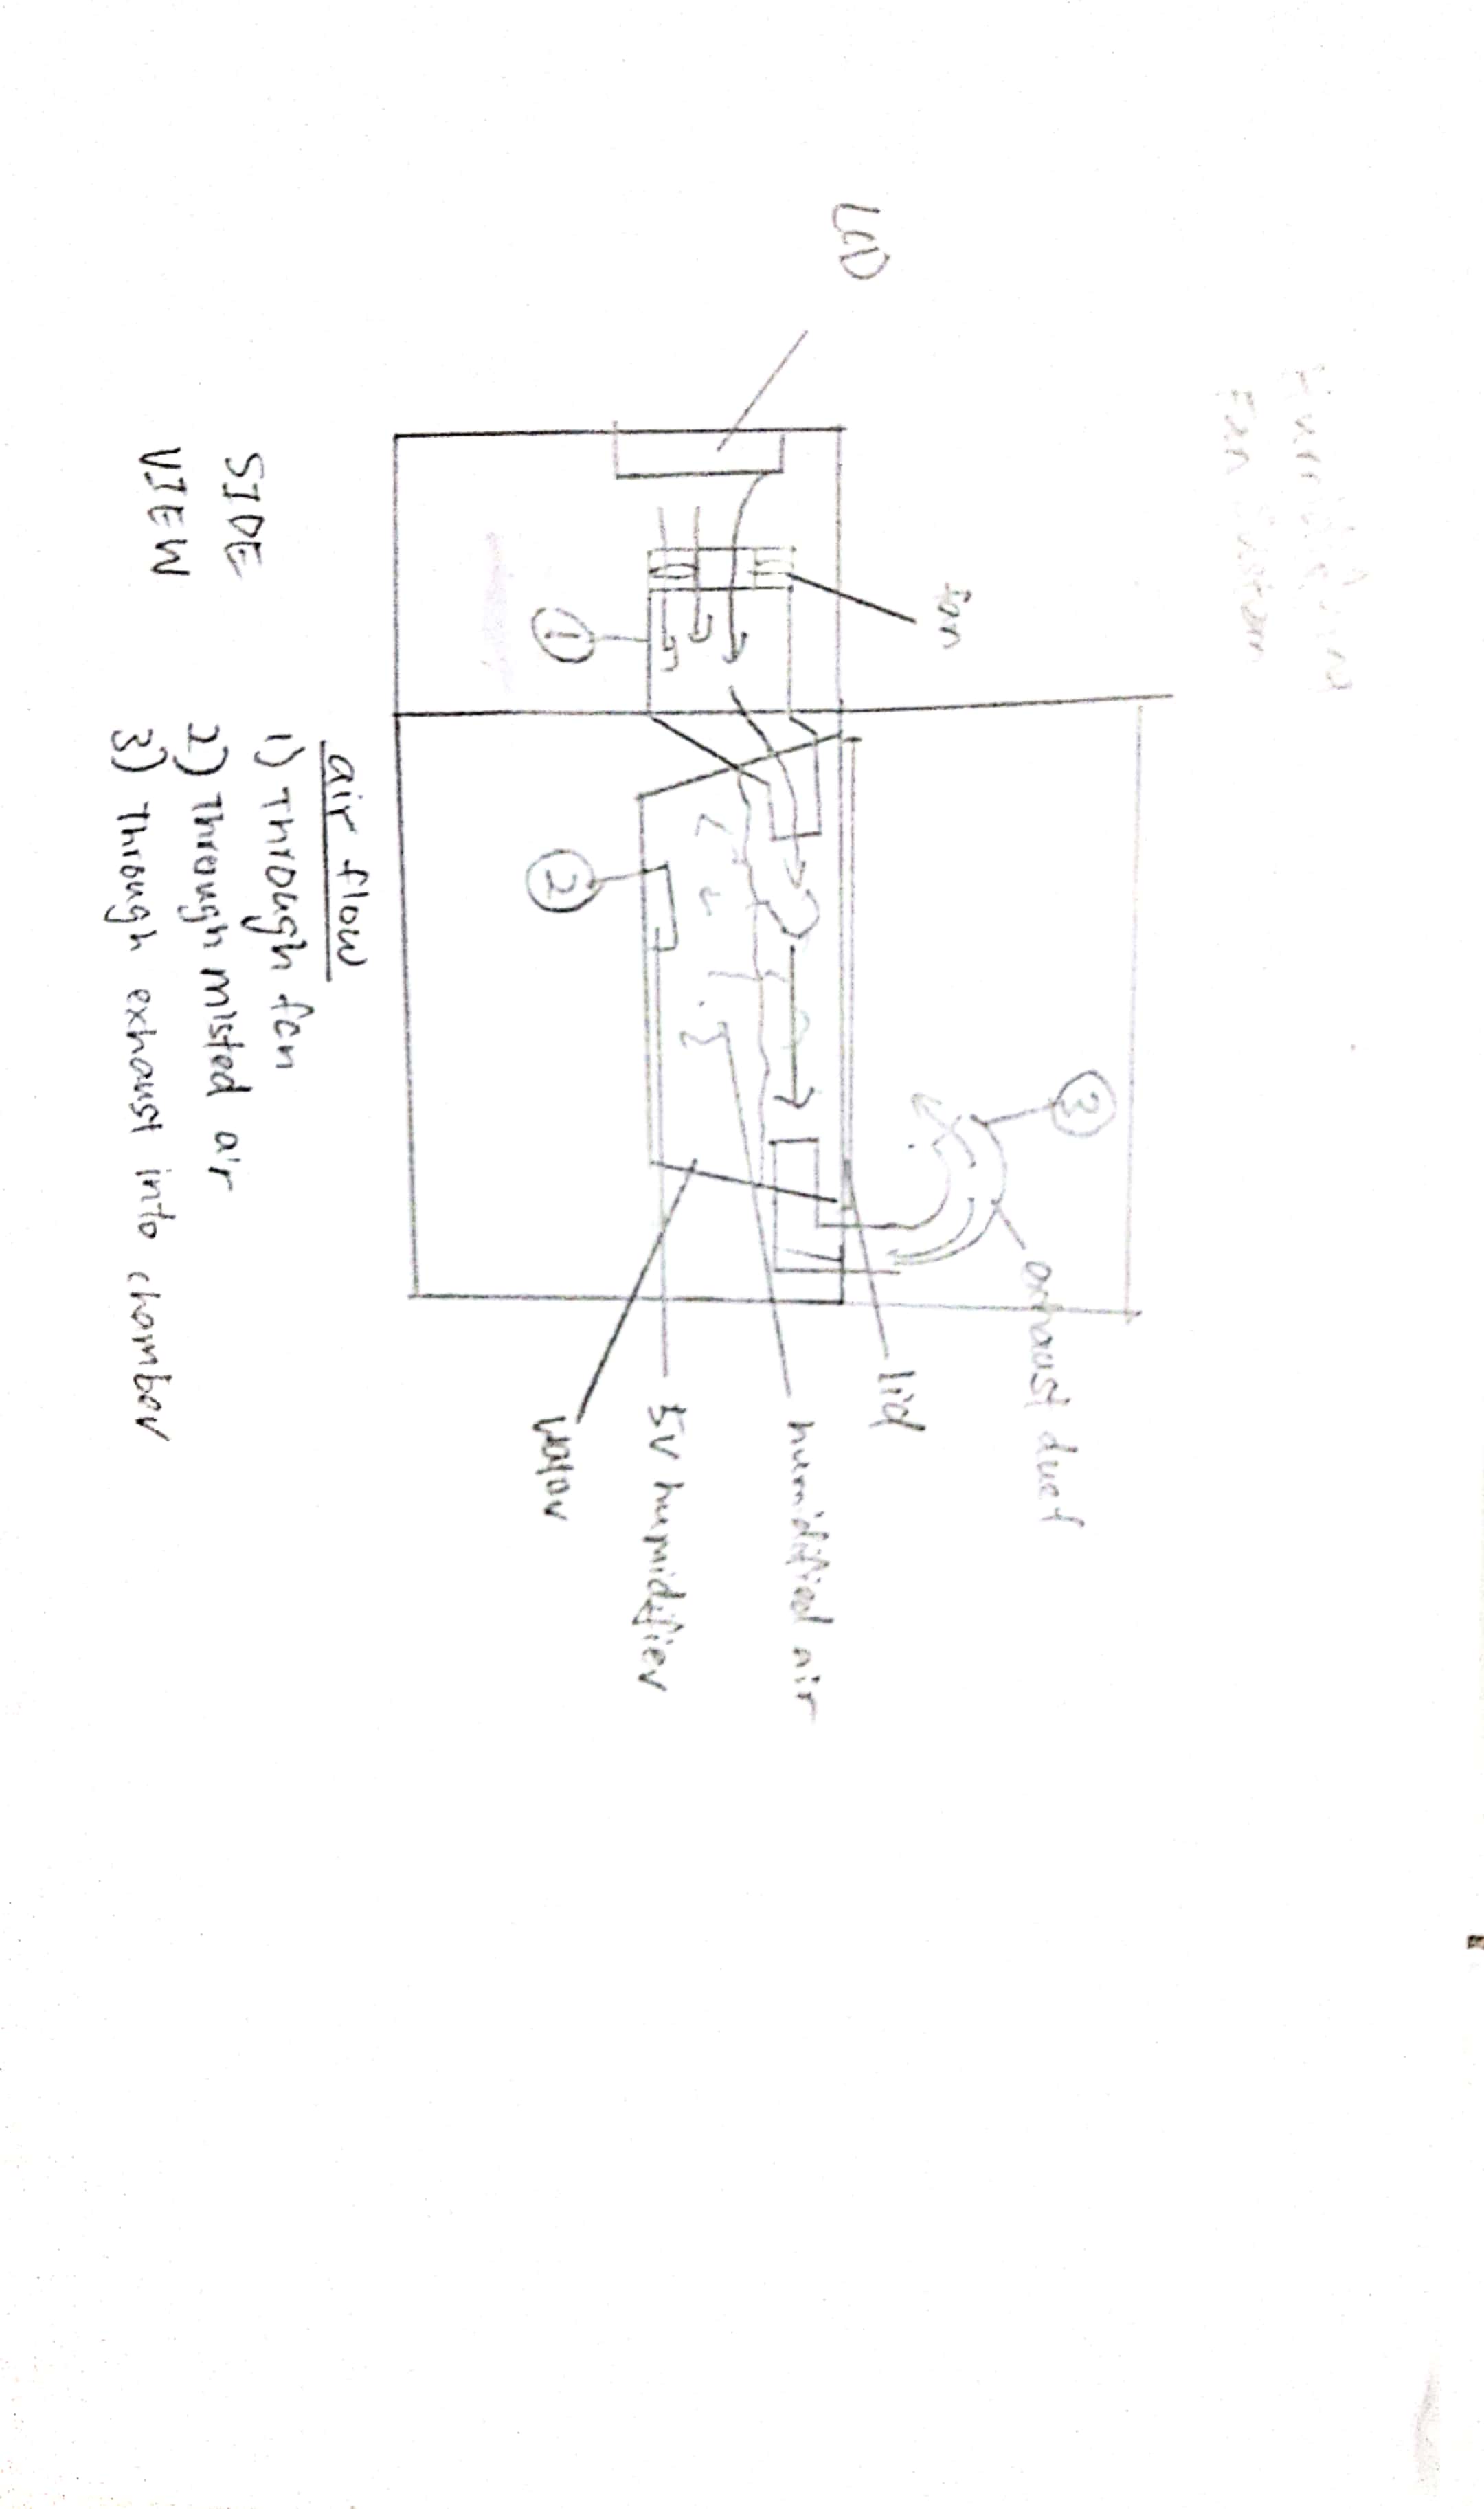 Humidifying
Fan System
3
exhaust duct
fan
lid
LCD
humidified air
5V humidifier
1
2
water
air flow
1) Through fan
SIDE
2) Through misted air
VIEW
3) Through exhaust into chamber